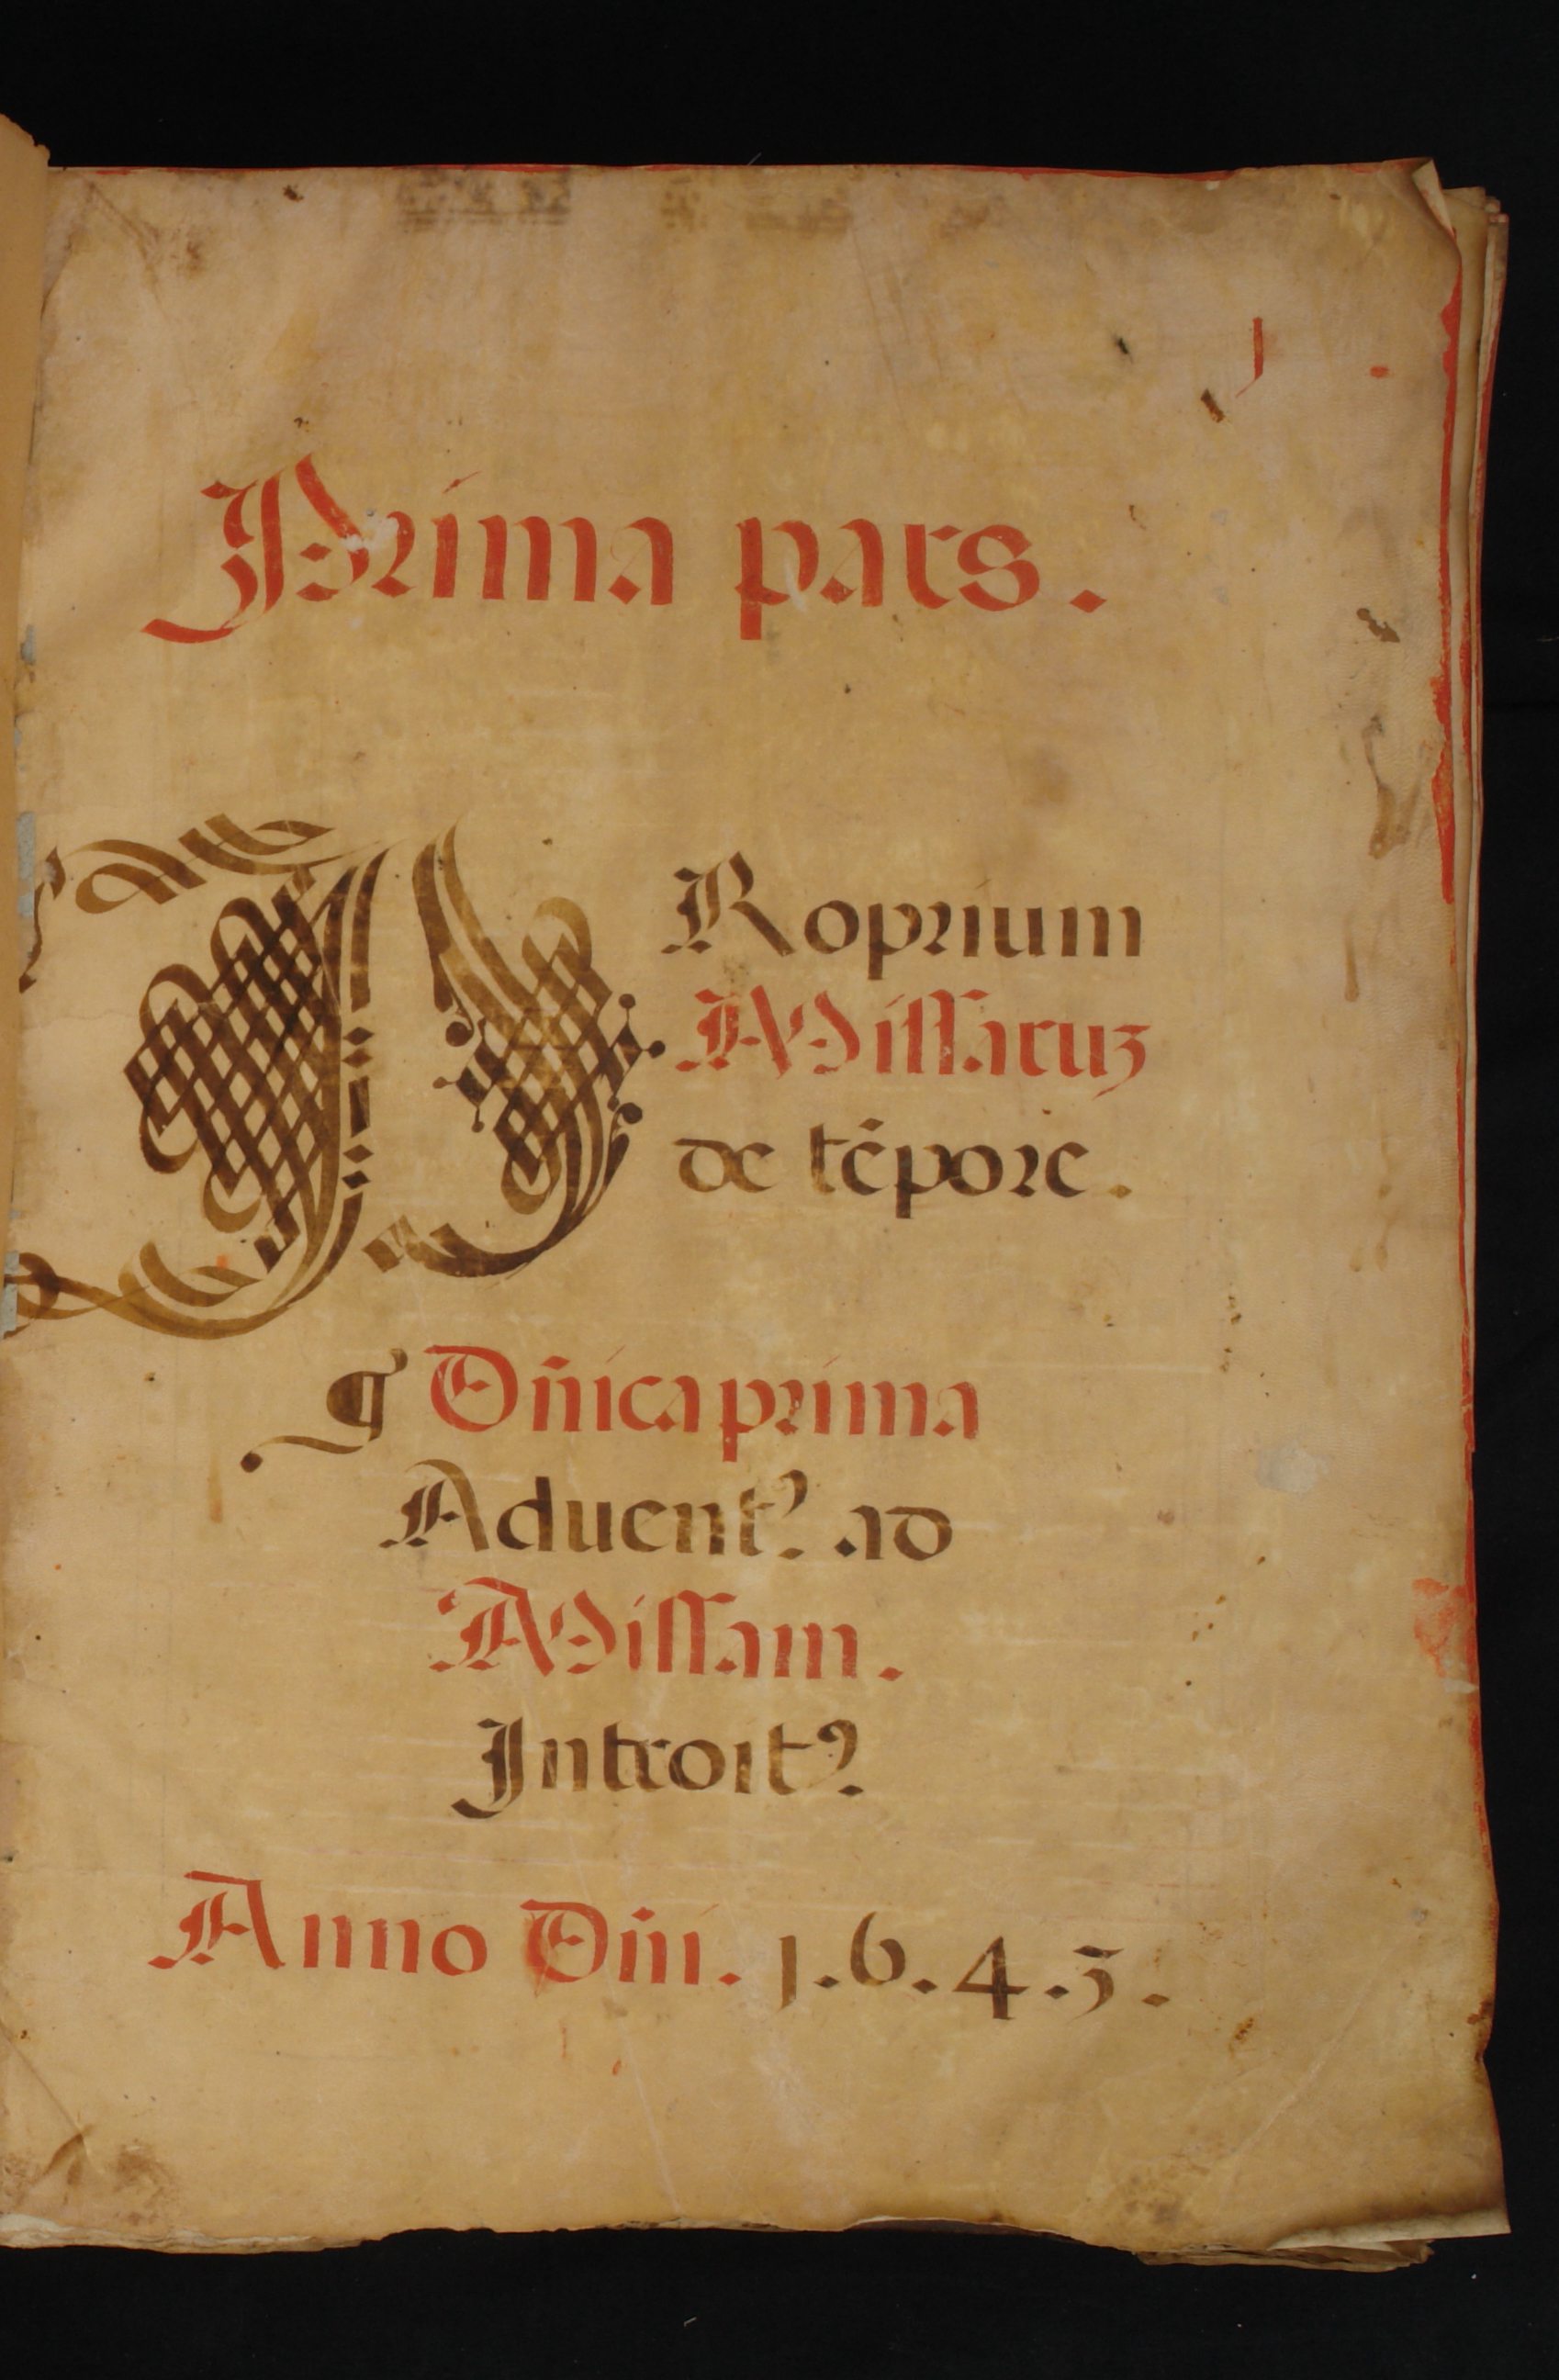 1
Prima pars.
PRoprium
Missaruz
de tẽpore.
¶ Dñica prima
Aduentꝰ. ad
Missam.
Introitꝰ.
Anno Dñi. 1.6.4.3.